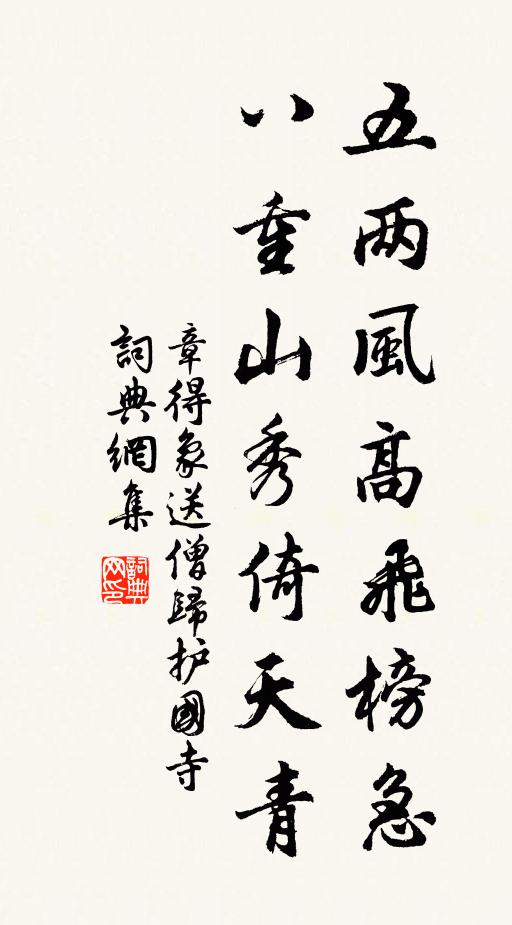 五两風高飛榜急
八重山秀倚天青
章得象送僧歸护國寺
詞典網集
詞典网印